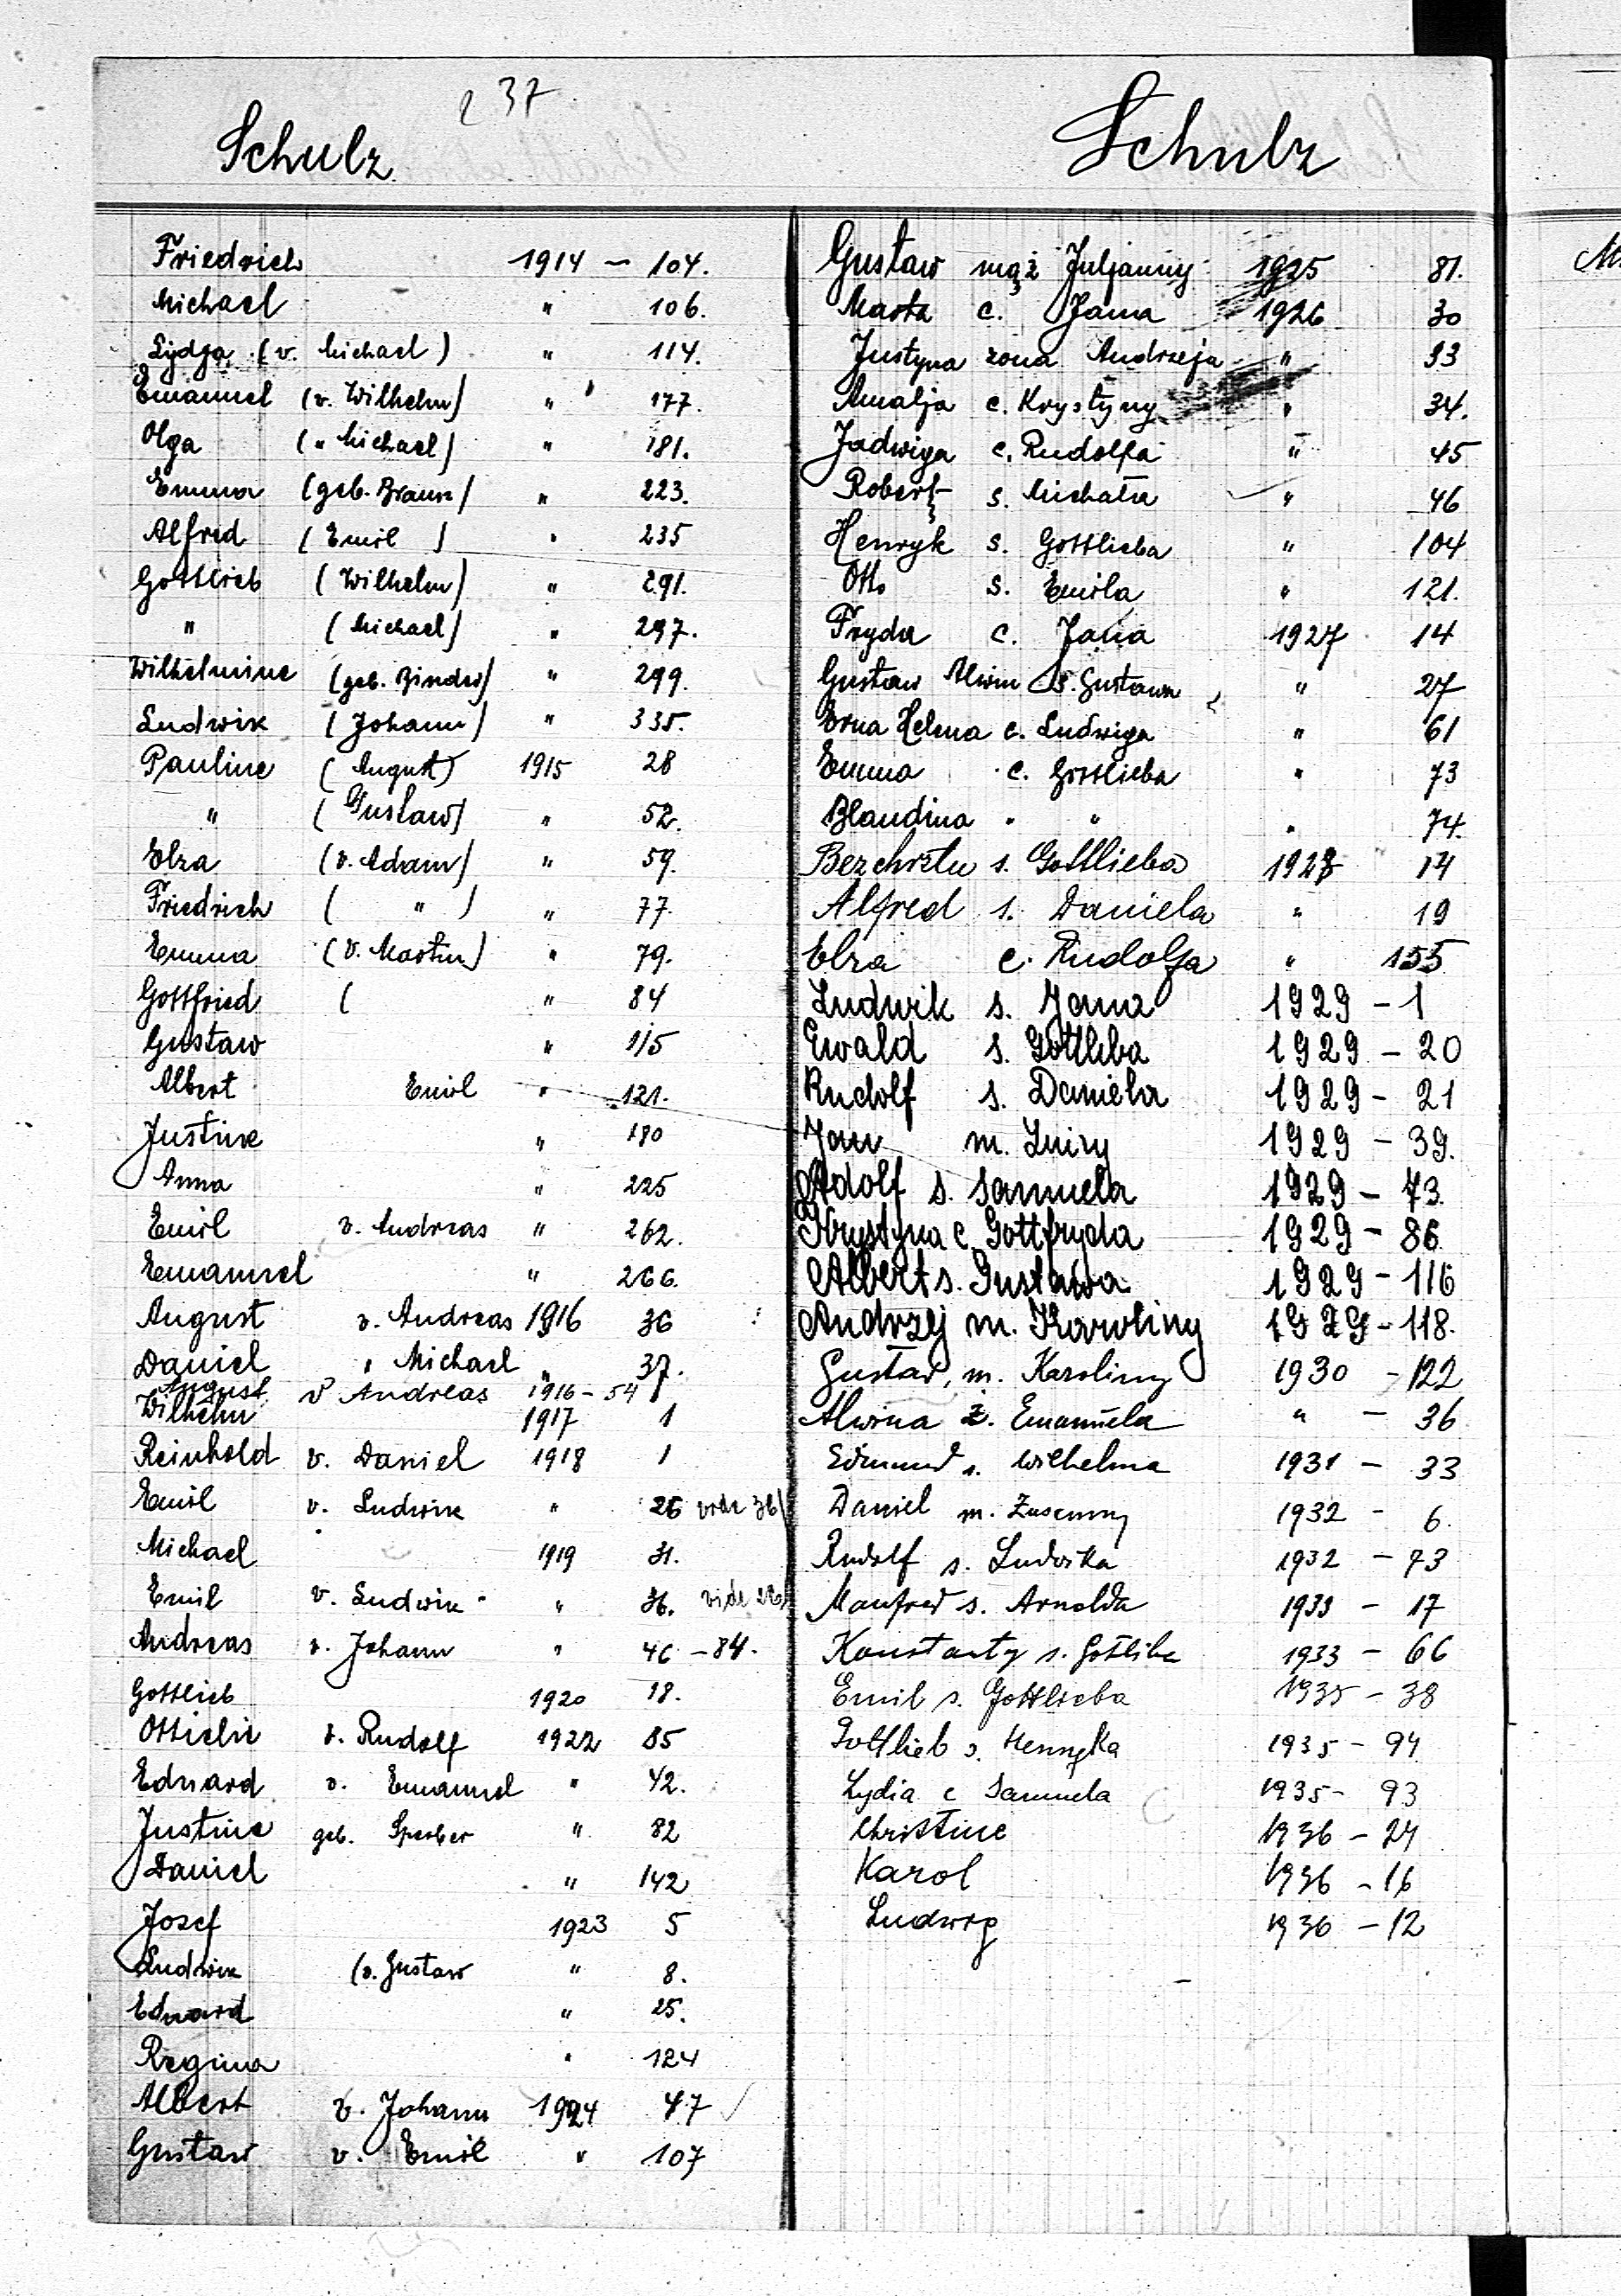 237
Schulz
Friedrich 1914 - 104.
Michael " 106.
Lydja (v. Michael) " 114.
Emanuel (v. Wilhelm) " 177.
Olga (" Michael) " 181.
Emma (geb. Braun) " 223.
Alfred (Emil) " 235
Gottlieb (Wilhelm) " 291.
" (Michael) " 297.
Wilhelmine (geb. Binder) " 299.
Ludwik (Johann) " 335.
Pauline (August) 1915 28
" (Gustaw) " 52.
Elza (v. Adam) " 59.
Friedrich ( " ) " 77.
Emma (v. Martin) " 79.
Gottfried ( " 84
Gustaw " 115
Albert Emil " 121.
Justine " 180
Anna " 225
Emil v. Andreas " 262.
Emanuel " 266.
August v. Andreas 1916 36
Daniel " Michael " 37.
August v Andreas 1916 - 54
Wilhelm 1917 1
Reinhold v. Daniel 1918 1
Emil v. Ludwik " 26 vide 36/
Michael 1919 31.
Emil v. Ludwik " 36. vide
Andreas v. Johann " 46 - 84.
Gottlieb 1920 18.
Ottielie v. Rudolf 1922 85
Eduard v. Emanuel " 42.
Justine geb. Sperber " 82
Daniel " 142
Josef 1923 5
Ludwik (v. Gustaw " 8.
Eduard " 25.
Regina " 124
Albert v. Johann 1924 47
Gustaw v. Emil " 107
Schulz
Gustaw mąż Juljanny 1925 81.
Marta c. Jana 1926 30
Justyna żona Andrzeja " 33
Amalja c. Krystyny " 34.
Jadwiga c. Rudolfa " 45
Robert s. Michała " 46
Henryk s. Gottlieba " 104
Otto s. Emila " 121.
Fryda c. Jana 1927 14
Gustaw Alwin s. Gustawa " 27
Erna Helena c. Ludwiga " 61
Emma c. Gottlieba " 73
Blandina " " " 74.
Bezchrztu s. Gottlieba 1928 14
Alfred s. Daniela " 19
Elza c. Rudolfa " 155
Ludwik s. Jana 1929 - 1
Ewald s. Gottliba 1929 - 20
Rudolf s. Daniela 1929 - 21
Jan m. Luizy 1929 - 39.
Adolf s. Samuela 1929 - 73.
Krystyna c. Gottfryda 1929 - 86
Albert s. Gustawa 1929 - 116
Andrzej m. Karoliny 1929 - 118.
Gustaw, m. Karoliny 1930 - 122
Alwina ż. Emanuela " - 36
Edmund s. Wilhelma 1931 - 33
Daniel m. Zuzanny 1932 - 6.
Rudolf s. Ludwika 1932 - 73
Manfred s. Arnolda 1933 - 17
Konstanty s. Gotliba 1933 - 66
Emil s. Gottlieba 1935 - 38
Gottlieb s. Henryka 1935 - 94
Lydia c Samuela 1935 - 93
Christine 1936 - 24
Karol 1936 - 16
Ludwig 1936 - 12